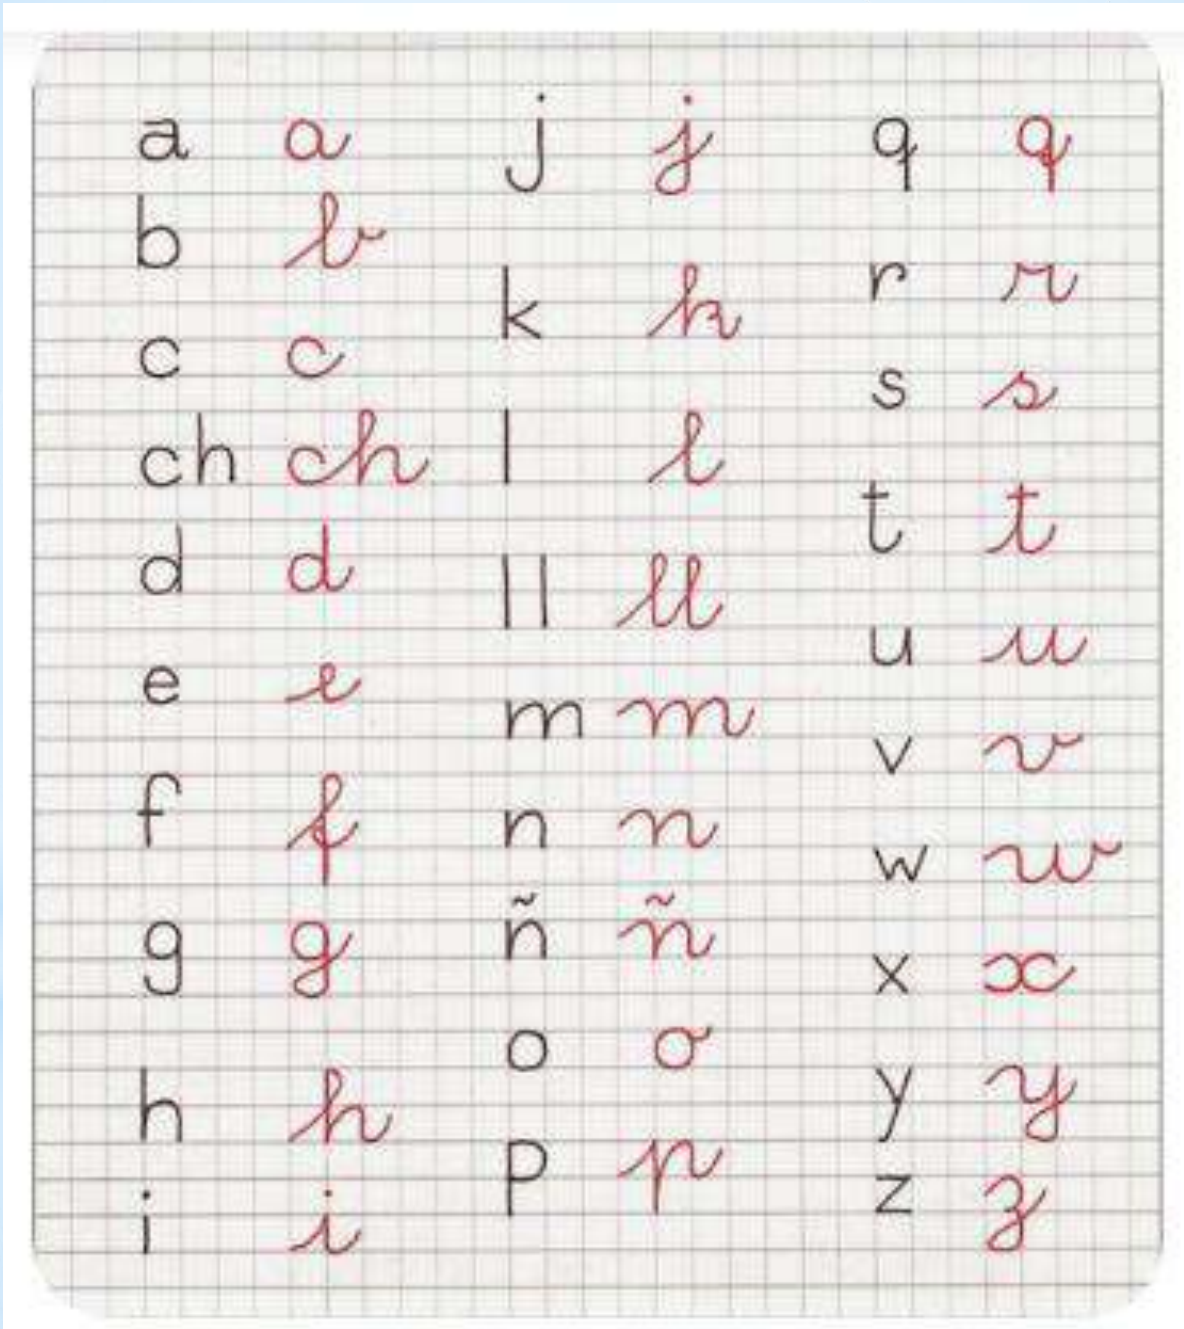 a a
b b
c c
ch ch
d d
e e
f f
g g
h h
i i
j j
k k
l l
ll ll
m m
n n
ñ ñ
o o
p p
q q
r r
s s
t t
u u
v v
w w
x x
y y
z z